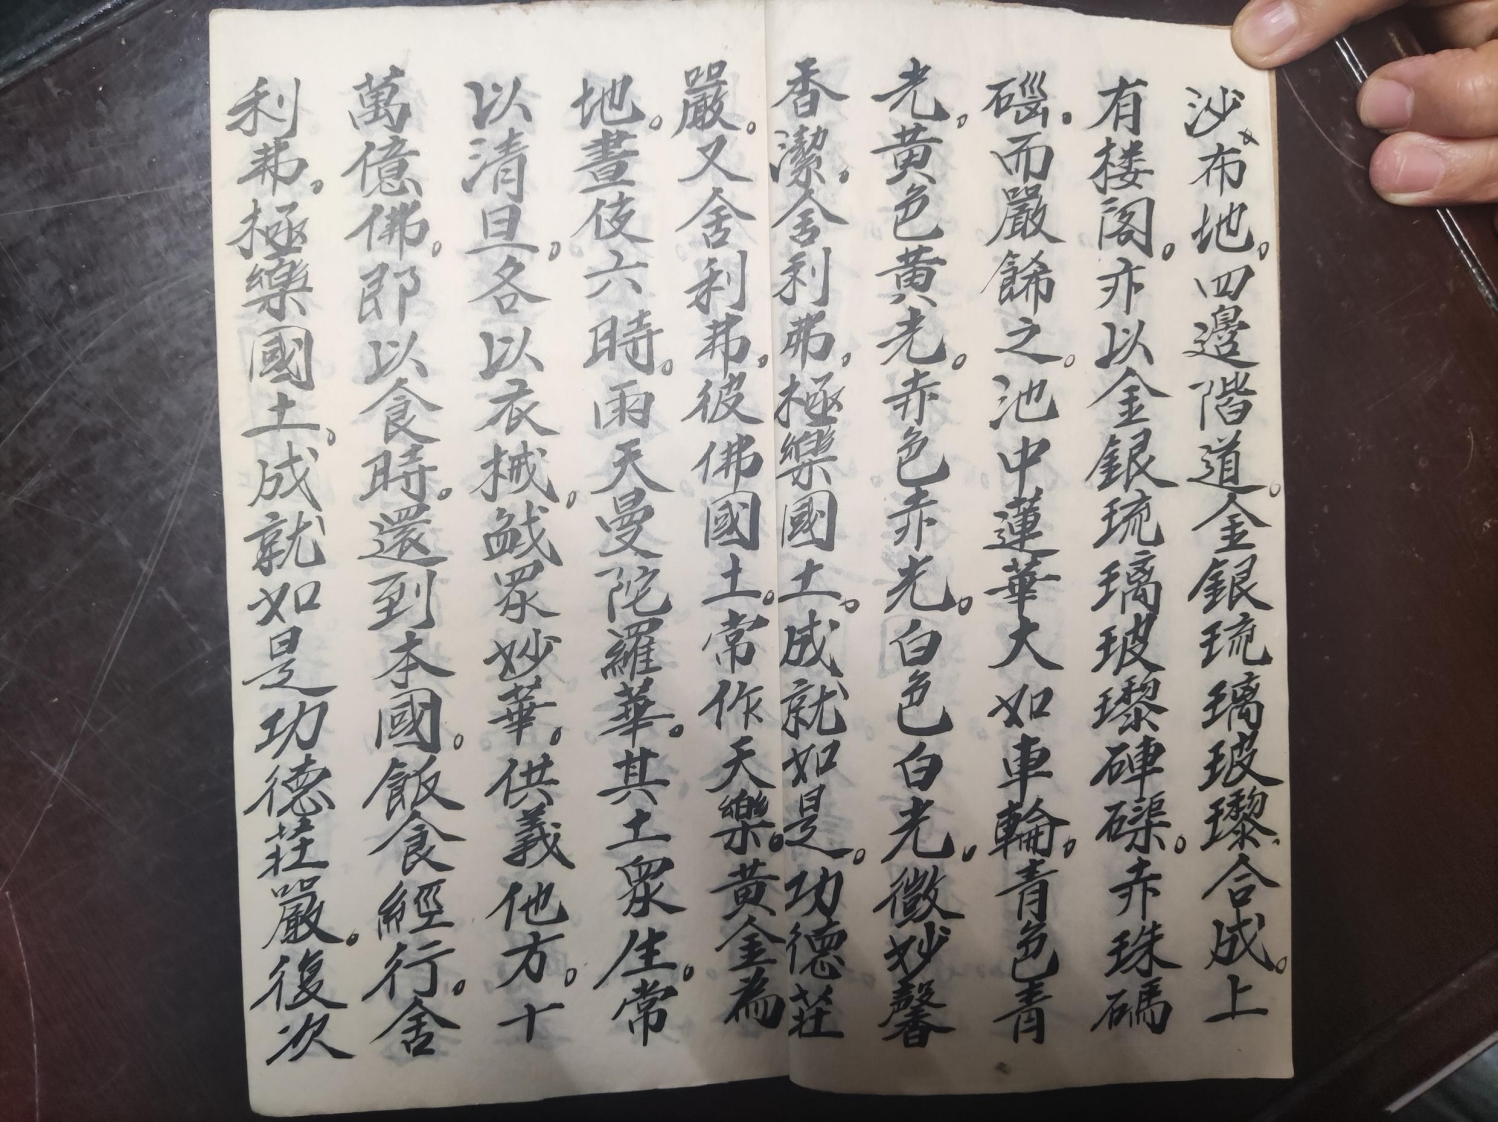 沙、布地。四邊階道。金銀琉璃玻瓈。合成。上
有楼阁。亦以金銀琉璃玻瓈硨磲。赤珠碼
碯。而嚴餙之。池中蓮華大如車輪。青色青
光。黄色黄光。赤色赤光。白色白光。微妙馨
香潔。舍利弗。極樂國土。成就如是。功德荘
嚴。又舍利弗。彼佛國土。常作天樂。黄金為
地。晝夜六時。雨天曼陀羅華。其土眾生。常
以清旦。各以衣祴。盛眾妙華。供義他方。十
萬億佛。即以食時。還到本國。飯食經行。舍
利弗。極樂國土。成就如是功德荘嚴。復次